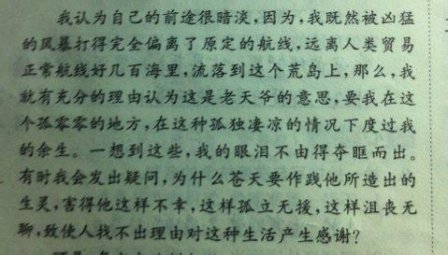 我认为自己的前途很暗淡,因为,我既然被凶猛
的风暴打得完全偏离了原定的航线,远离人类贸易
正常航线好几百海里,流落到这个荒岛上,那么,我
就有充分的理由认为这是老天爷的意思,要我在这
个孤零零的地方,在这种孤独凄凉的情况下度过我
的余生。一想到这些,我的眼泪不由得夺眶而出。
有时我会发出疑问,为什么苍天要作践他所造出的
生灵,害得他这样不幸,这样孤立无援,这样沮丧无
聊,致使人找不出理由对这种生活产生感谢?